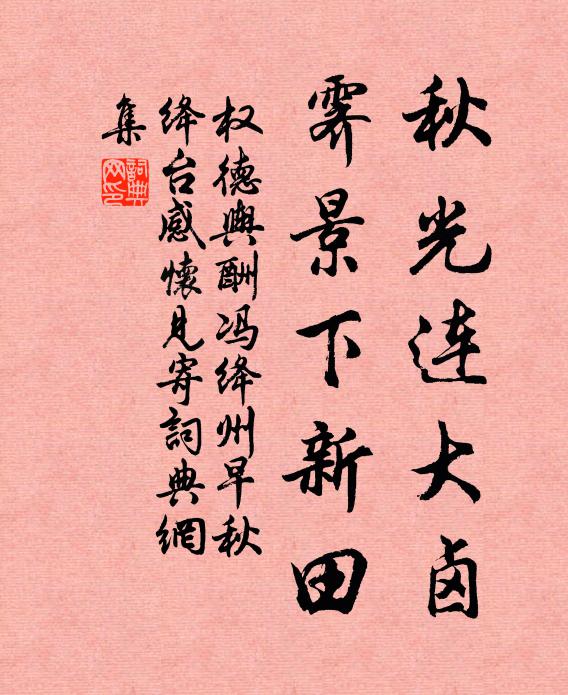 秋光连大卤
霁景下新田
权德舆酬冯绛州早秋
绛台感怀见寄詞典網
集
詞典网印